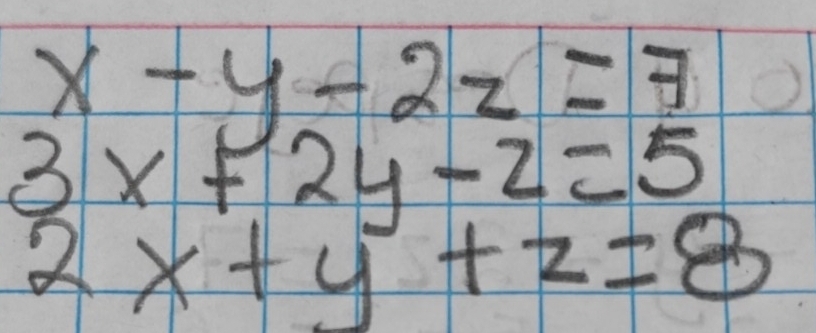 x - y - 2z = 7
3x + 2y - z = 5
2x + y + z = 8